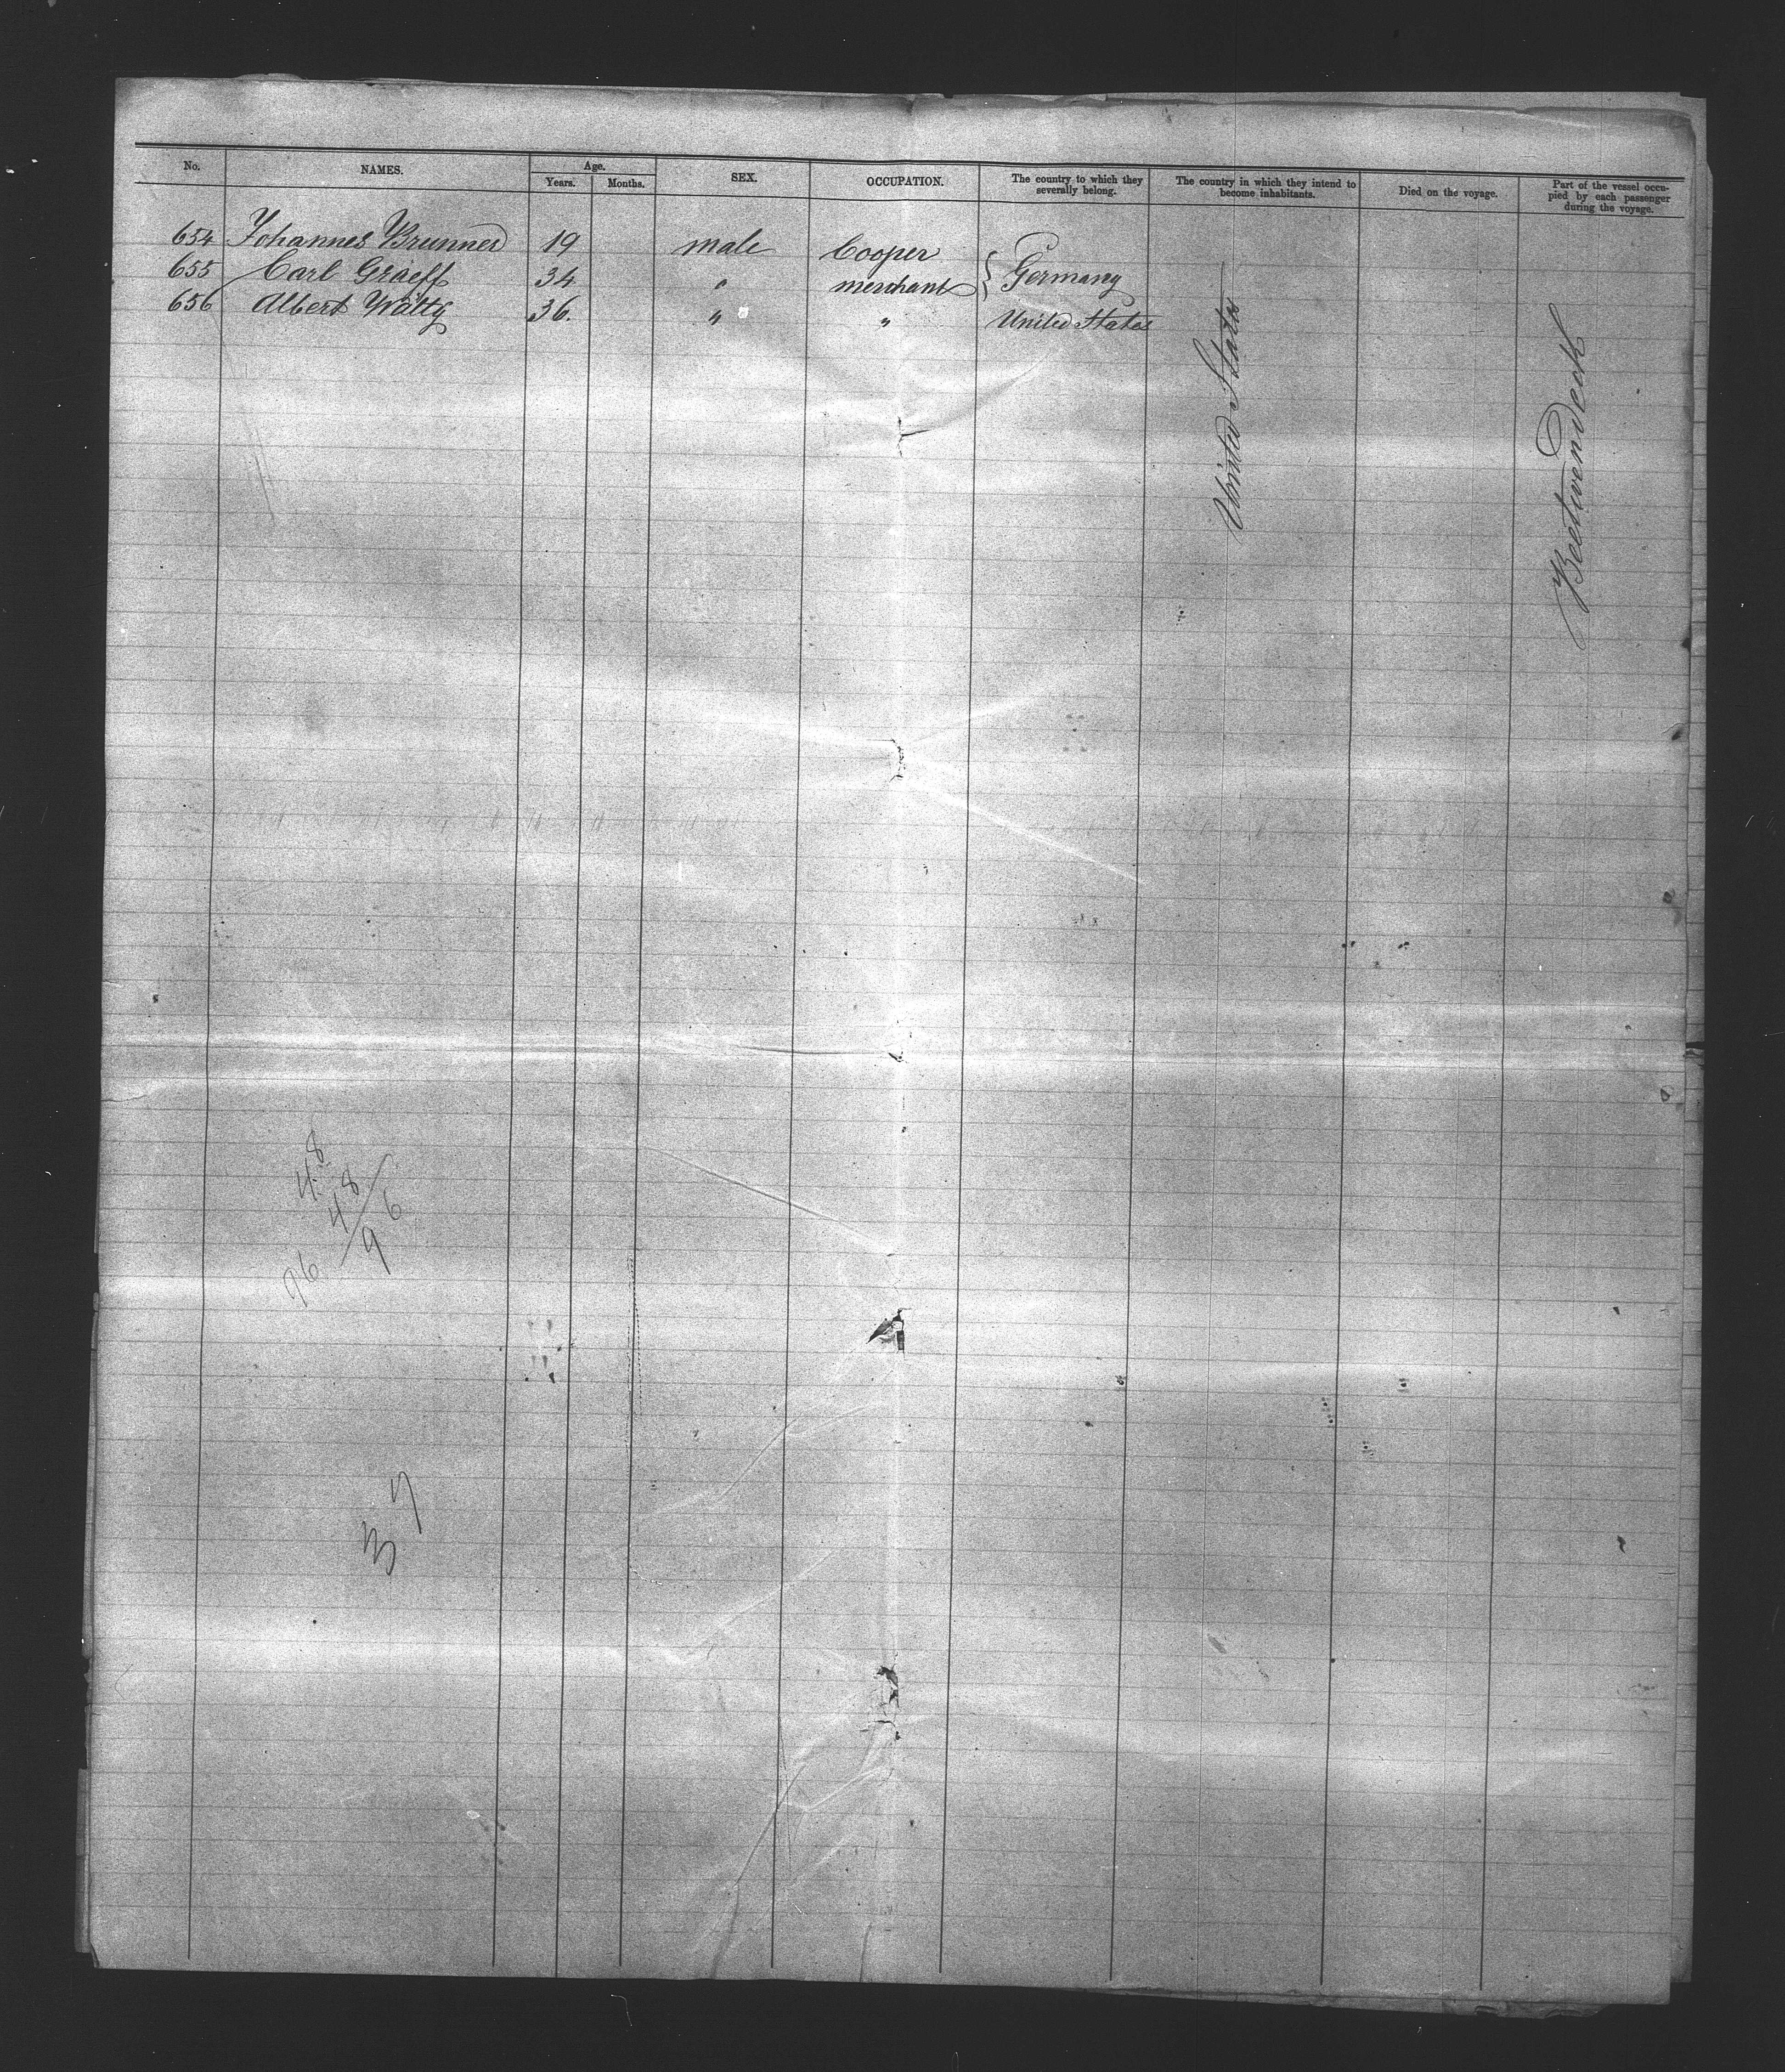 No. NAMES. Age. Years. Months. SEX. OCCUPATION. The country to which they severally belong. The country in which they intend to become inhabitants. Died on the voyage. Part of the vessel occupied by each passenger during the voyage.
654 Johannes Brunner 19 male Cooper { Germany
655 Carl Graeff 34 " merchant
656 Albert Wälty 36. " " United States
United States
Beetwendeck
48
48
96
96
37